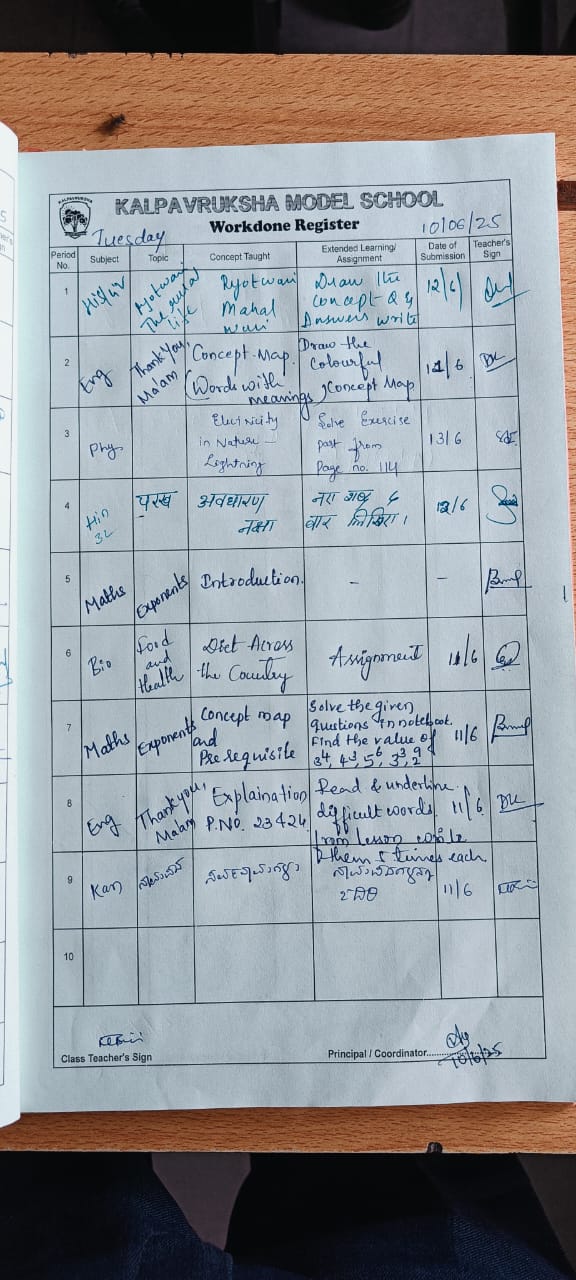 KALPAVRUKSHA
KALPAVRUKSHA MODEL SCHOOL
Workdone Register
Tuesday
10/06/25
Period No. Subject Topic Concept Taught Extended Learning/ Assignment Date of Submission Teacher's Sign
1 Ryotwari Ryotwari Draw the 12/6
The rural life Mahal concept Q &
wari Answers write
2 Eng Thank You, Ma'am Concept Map. Draw the 11/6
(Words with meanings) Colourful
Concept Map
3 Phy Electricity Solve Exercise 13/6
in Nature – part from
Lightning Page no. 114
4 Hin 3L परख अवधारणा 12/6
नक्शा बार लिखिए।
5 Maths Exponents Introduction. - -
6 Bio Food and Health Diet Across Assignment 11/6
the Country
7 Maths Exponents Concept map Solve the given 11/6
and questions in notebook.
Pre requisite Find the value of
3⁴, 4³, 5⁶, 7³, 2⁹
8 Eng Thank you, Ma'am Explaination Read & underline 11/6
P.No. 23 & 24. difficult words
from lesson & write
them 5 times each
9 Kan 11/6
10
Class Teacher's Sign
Principal / Coordinator..........
10/6/25